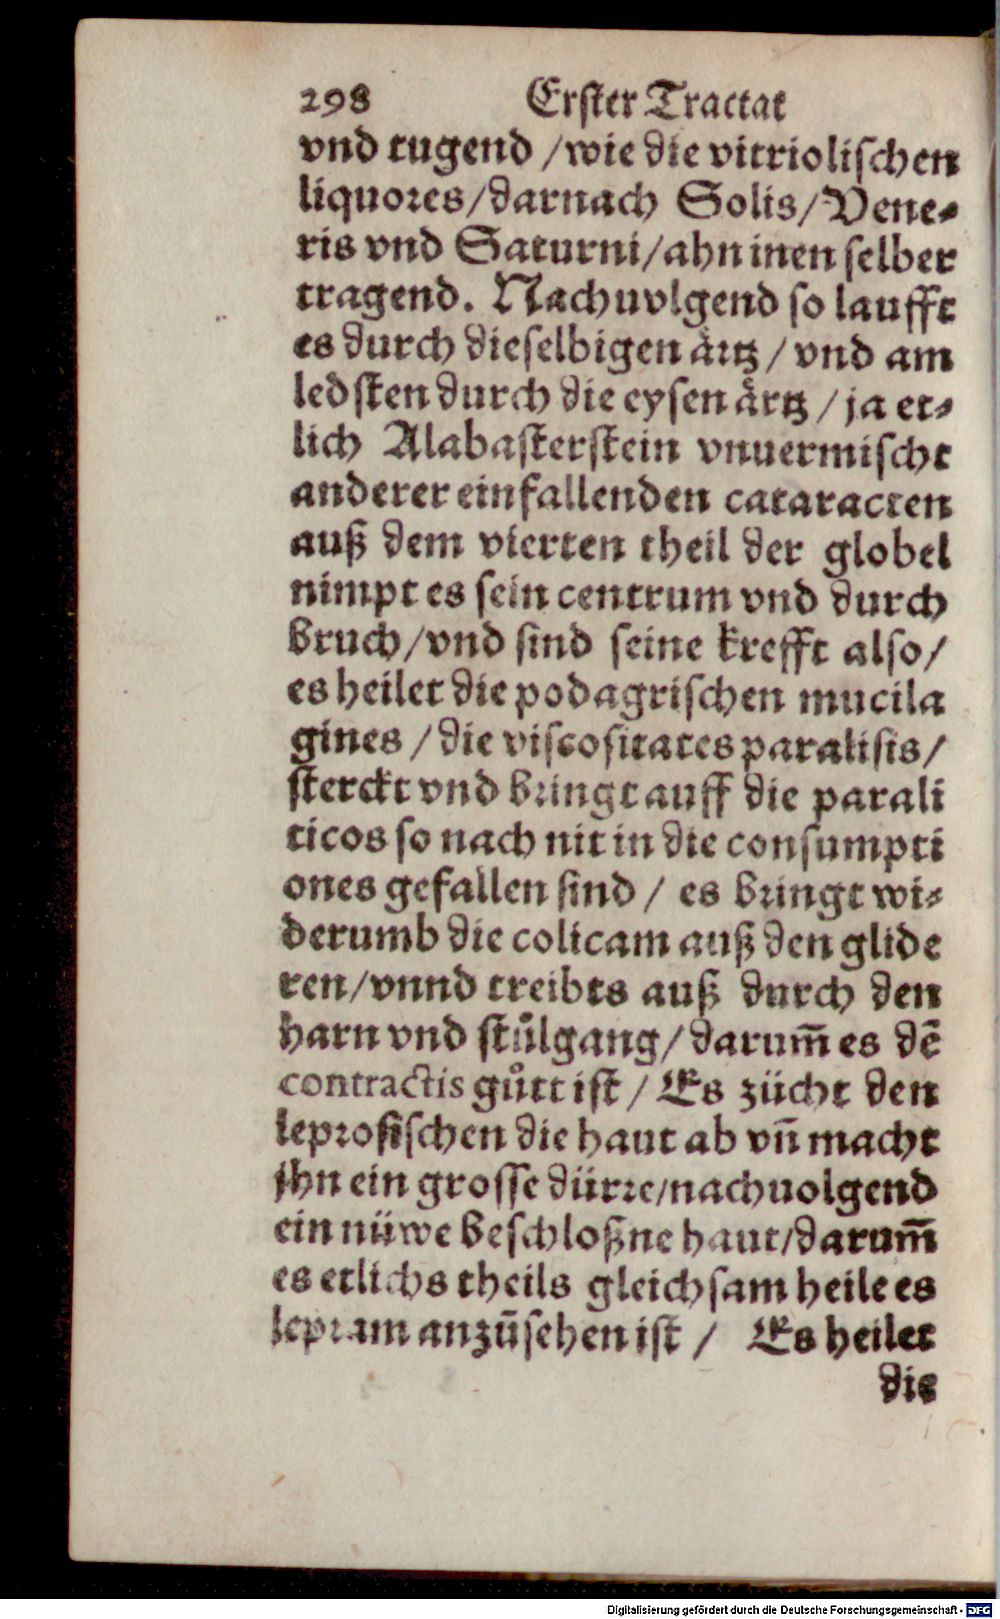 298 Erster Tractat
vnd tugend /wie die vitriolischen
liquores/darnach Solis/Vene-
ris vnd Saturni/ahn inen selber
tragend. Nachuolgend so laufft
es durch dieselbigen ärtz/ vnd am
ledsten durch die eysen ärtz /ja et-
lich Alabasterstein vnuermischt
anderer einfallenden cataracten
auß dem vierten theil der globel
nimpt es sein centrum vnd durch
bruch/vnd sind seine krefft also/
es heilet die podagrischen mucila
gines /die viscositates paralisis/
sterckt vnd bringt auff die parali
ticos so nach nit in die consumpti
ones gefallen sind / es bringt wi-
derumb die colicam auß den glide
ren/vnnd treibts auß durch den
harn vnd stůlgang/darum̃ es dẽ
contractis gůtt ist / Es zücht den
leprosischen die haut ab vñ macht
jhn ein grosse dürre/nachuolgend
ein nüwe beschloßne haut/darum̃
es etlichs theils gleichsam heile es
lepram anzůsehen ist / Es heilet
die
Digitalisierung gefördert durch die Deutsche Forschungsgemeinschaft - DFG